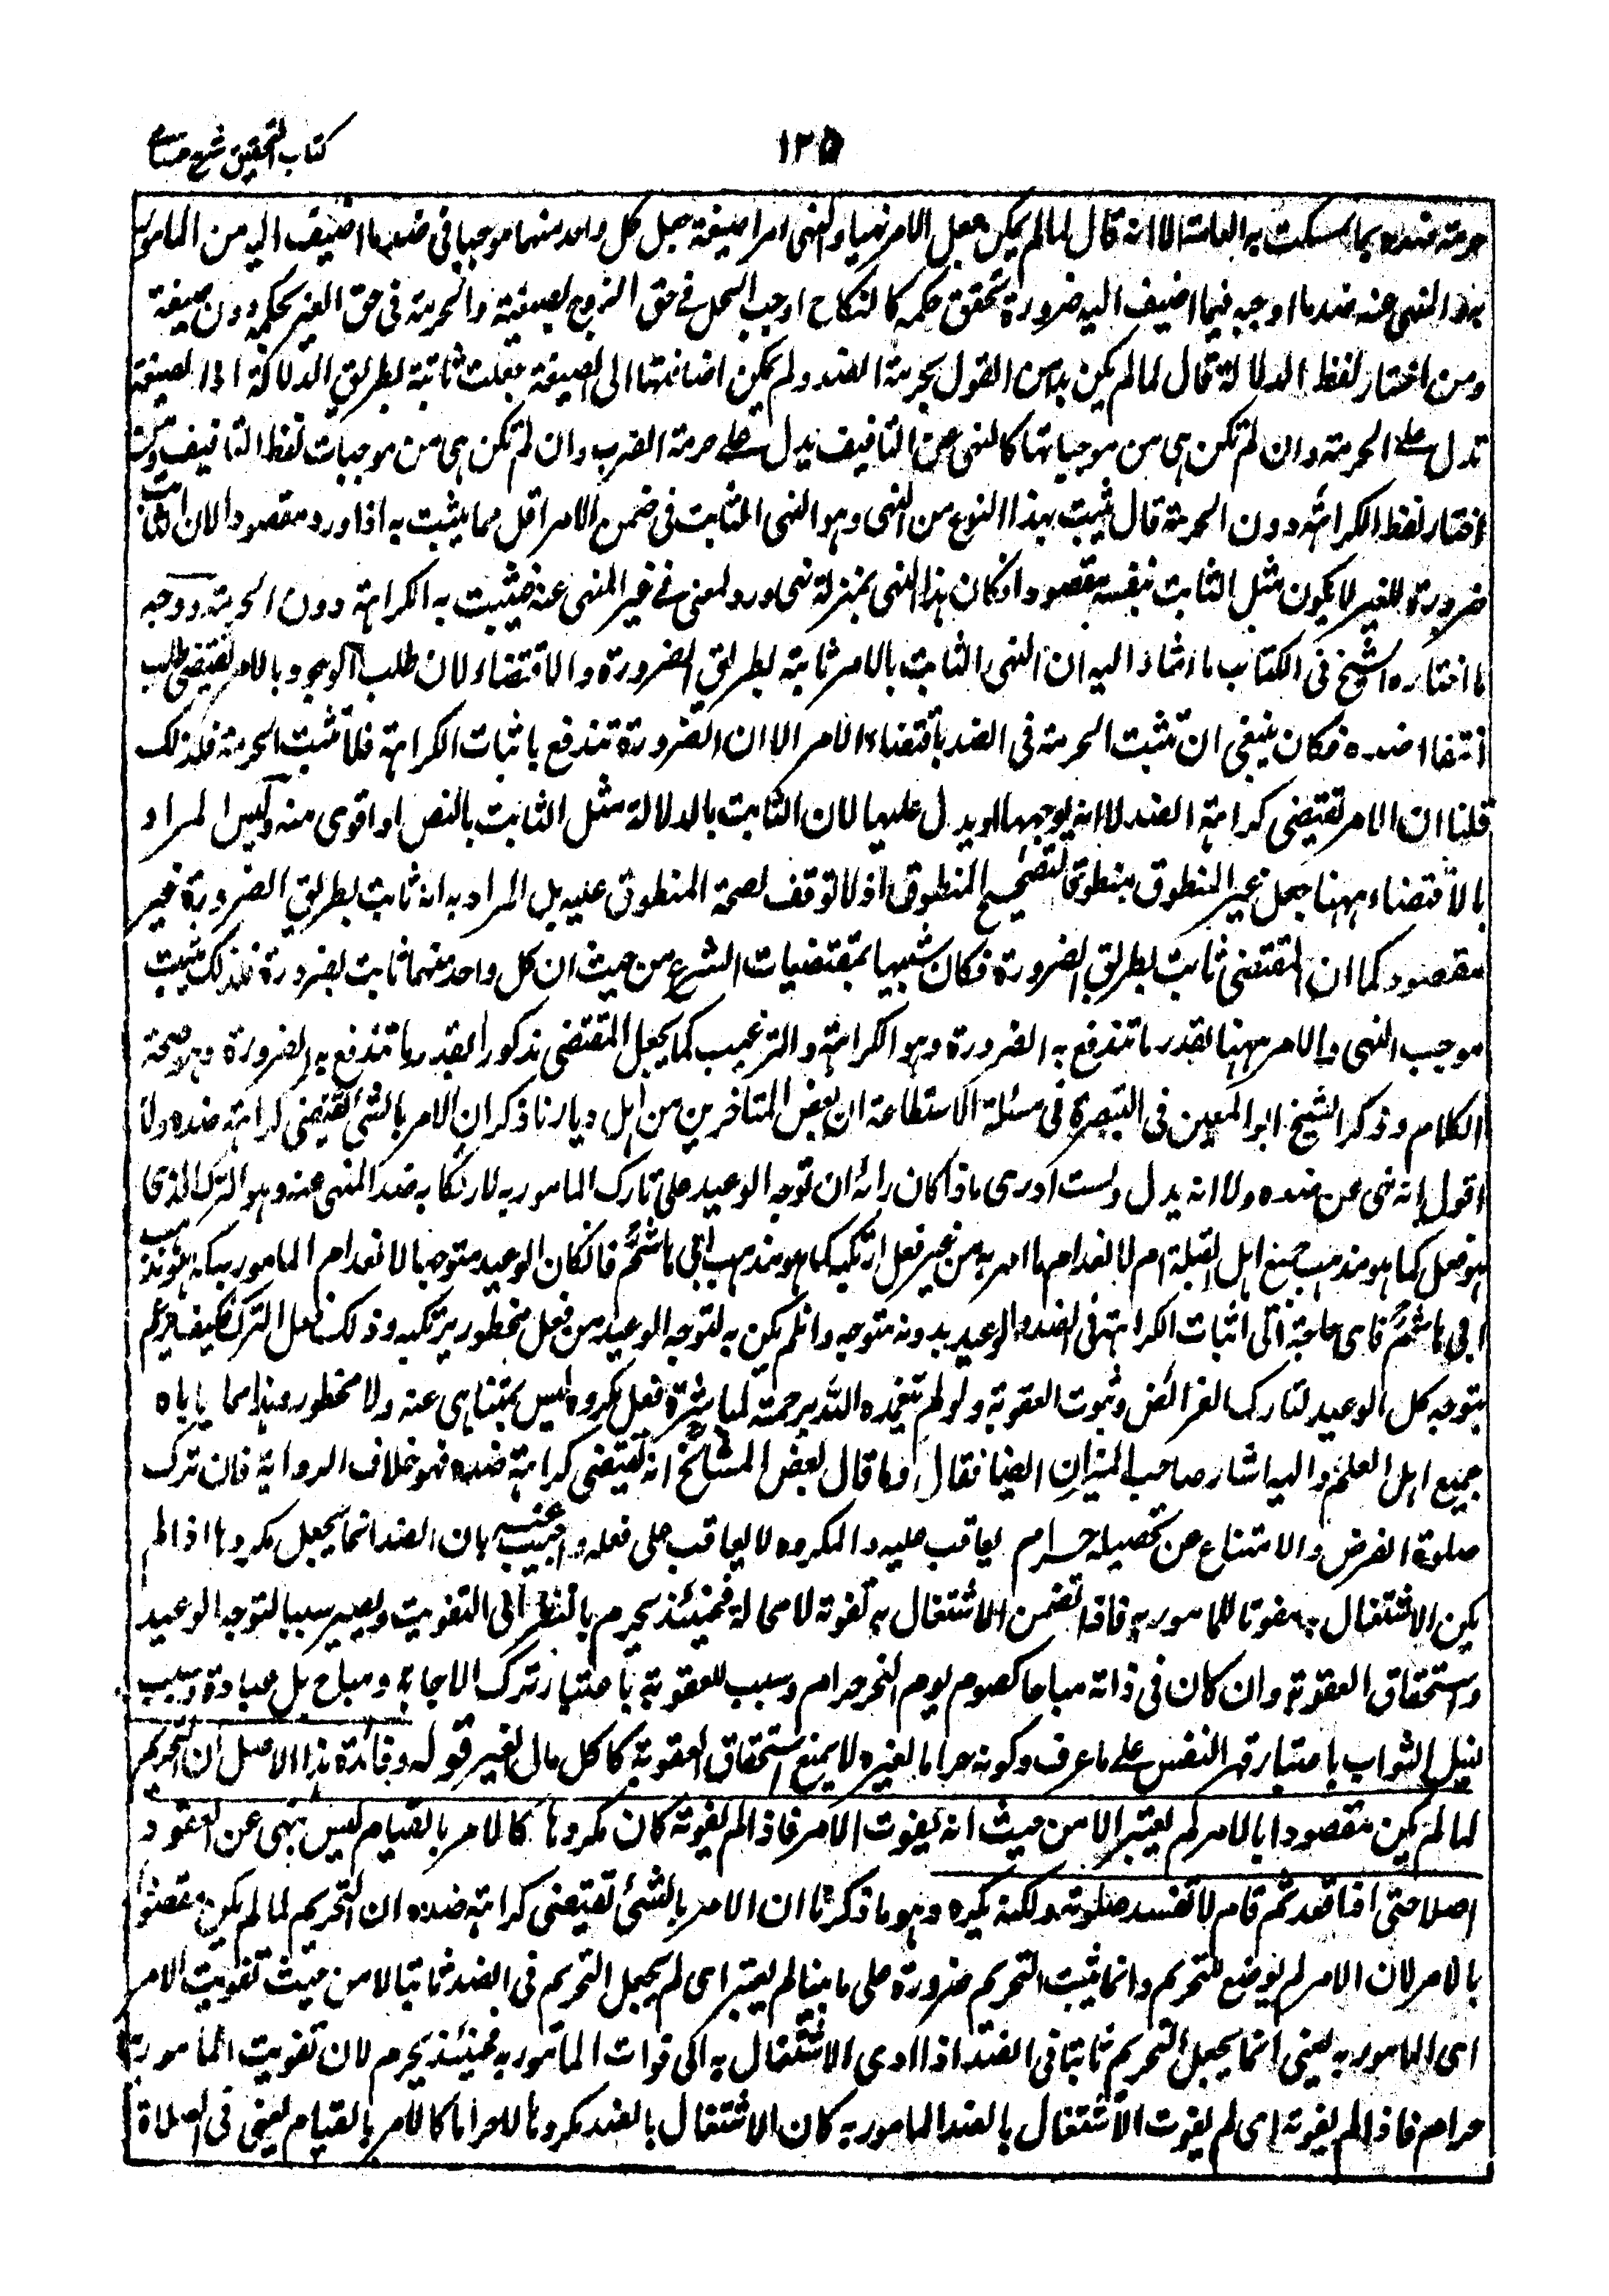 كتاب التحقيق شرح حسامى
١٢٥
حرمته ضده بما تمسكت به العامة الا انه قال لما لم يكن جعل الامر نهيا والنهى امرا صيغة جعل كل واحد منهما موجبا فى ضد ما اضيف اليه من المامور
به والمنهى عنه ضد ما اوجبه فيما اضيف اليه ضرورة تحقق حكمه كالنكاح اوجب الحل فى حق الزوج بصيغته والحرمة فى حق الغير بحكمه دون صيغته
ومن اختار لفظ الدلالة قال لما لم يكن بد من القول بحرمة الضد ولم يمكن اضافتها الى الصيغة جعلت ثابتة بطريق الدلالة اذا الصيغة
تدل على الحرمة وان لم تكن هى من موجباتها كالنهى عن التافيف يدل على حرمة الضرب وان لم تكن هى من موجبات لفظ التافيف ومن
اختار لفظ الكراهة دون الحرمة قال يثبت بهذا النوع من النهى وهو النهى الثابت فى ضمن الامر اقل مما يثبت به اذا ورد مقصودا لان الثابت
ضرورة للغير لا يكون مثل الثابت بنفسه مقصودا فكان هذا النهى بمنزلة نهى ورد لمعنى فى غير المنهى عنه فيثبت به الكراهة دون الحرمة ووجه
ما اختاره الشيخ فى الكتاب ما اشار اليه ان النهى الثابت بالامر ثابت بطريق الضرورة والاقتضاء لان طلب الوجود بالامر يقتضى طلب
انتفاء ضده فكان ينبغى ان تثبت الحرمة فى الضد باقتضاء الامر الا ان الضرورة تندفع باثبات الكراهة فلا تثبت الحرمة فلذلك
قلنا ان الامر يقتضى كراهة الضد لا انه يوجبها او يدل عليها لان الثابت بالدلالة مثل الثابت بالنص او اقوى منه وليس المراد
بالاقتضاء ههنا جعل غير المنطوق منطوقا لتصحيح المنطوق اذ لا توقف لصحة المنطوق عليه بل المراد به انه ثابت بطريق الضرورة غير
مقصود كما ان المقتضى ثابت بطريق الضرورة فكان شبيها بمقتضيات الشرع من حيث ان كل واحد منهما ثابت بضرورة فلذلك يثبت
موجب النهى والامر ههنا بقدر ما تندفع به الضرورة وهو الكراهة والترغيب كما يجعل المقتضى مذكورا بقدر ما تندفع به الضرورة وهو صحة
الكلام وذكر الشيخ ابو المعين فى التبصرة فى مسئلة الاستطاعة ان بعض المتاخرين من اهل ديارنا ذكر ان الامر بالشئ يقتضى كراهة ضده ولا
اقول انه نهى عن ضده ولا انه يدل ولست ادرى ماذا كان رائه ان توجه الوعيد على تارك المامور به لارتكابه ضد المنهى عنه وهو الترك الذى
هو فعل كما هو مذهب جميع اهل القبلة ام لانعدام ما امر به من غير فعل ارتكبه كما هو مذهب ابى هاشم فان كان الوعيد متوجها لانعدام المامور به كما هو مذهب
ابى هاشم فاى حاجة الى اثبات الكراهة فى الضد والوعيد بدونه متوجه وان لم يكن به لتوجه الوعيد من فعل محظور يرتكبه وذلك فعل الترك فكيف يزعم
بتوجه كل الوعيد لتارك الفرائض وثبوت العقوبة ولو لم يتغمده الله برحمته لمباشرة فعل مكروه ليس بمتناهى عنه ولا محظور وهذا مما ياباه
جميع اهل العلم واليه اشار صاحب الميزان ايضا فقال وما قال بعض المشايخ انه يقتضى كراهة ضده فهو خلاف الرواية فان ترك
صلوة الفرض والامتناع عن تحصيله حرام يعاقب عليه والمكروه لا يعاقب على فعله واجيب عنه بان الضد انما يجعل مكروها اذا لم
يكن الاشتغال به مفوتا للمامور به فاذا تضمن الاشتغال به تفويته لا محالة فحينئذ يحرم بالنظر الى التفويت ويصير سببا لتوجه الوعيد
واستحقاق العقوبة وان كان فى ذاته مباحا كصوم يوم النحر حرام وسبب للعقوبة باعتبار ترك الاجابة ومباح بل عبادة وسبب
لنيل الثواب باعتبار قهر النفس على ما عرف وكونه حراما لغيره لا يمنع استحقاق العقوبة كاكل مال الغير قوله وفائدة هذا الاصل ان التحريم
لما لم يكن مقصودا بالامر لم يعتبر الا من حيث انه يفوت الامر فاذا لم يفوته كان مكروها كالامر بالقيام ليس بنهى عن القعود
اصلا حتى اذا قعد ثم قام لا تفسد صلوته ولكنه يكره وهو ما ذكرنا ان الامر بالشئ يقتضى كراهة ضده ان التحريم لما لم يكن مقصودا
بالامر لان الامر لم يوضع للتحريم وانما يثبت التحريم ضرورة على ما بينا لم يعتبر اى لم يجعل التحريم فى الضد ثابتا الا من حيث تفويت الامر
اى المامور به يعنى انما يجعل التحريم ثابتا فى الضد اذا ادى الاشتغال به الى فوات المامور به فحينئذ يحرم لان تفويت المامور به
حرام فاذا لم يفوته اى لم يفوت الاشتغال بالضد المامور به كان الاشتغال بالضد مكروها لا حراما كالامر بالقيام يعنى فى الصلاة